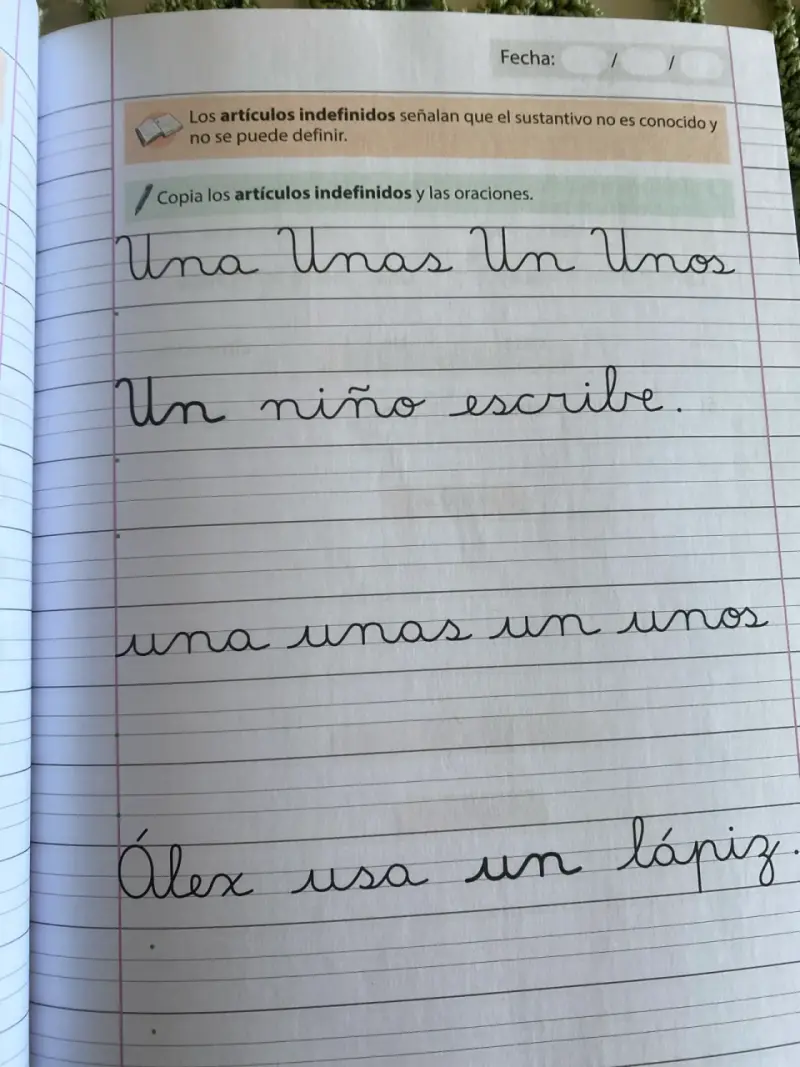 Fecha: / /
Los artículos indefinidos señalan que el sustantivo no es conocido y
no se puede definir.
Copia los artículos indefinidos y las oraciones.
Una Unas Un Unos
Un niño escribe.
una unas un unos
Álex usa un lápiz.